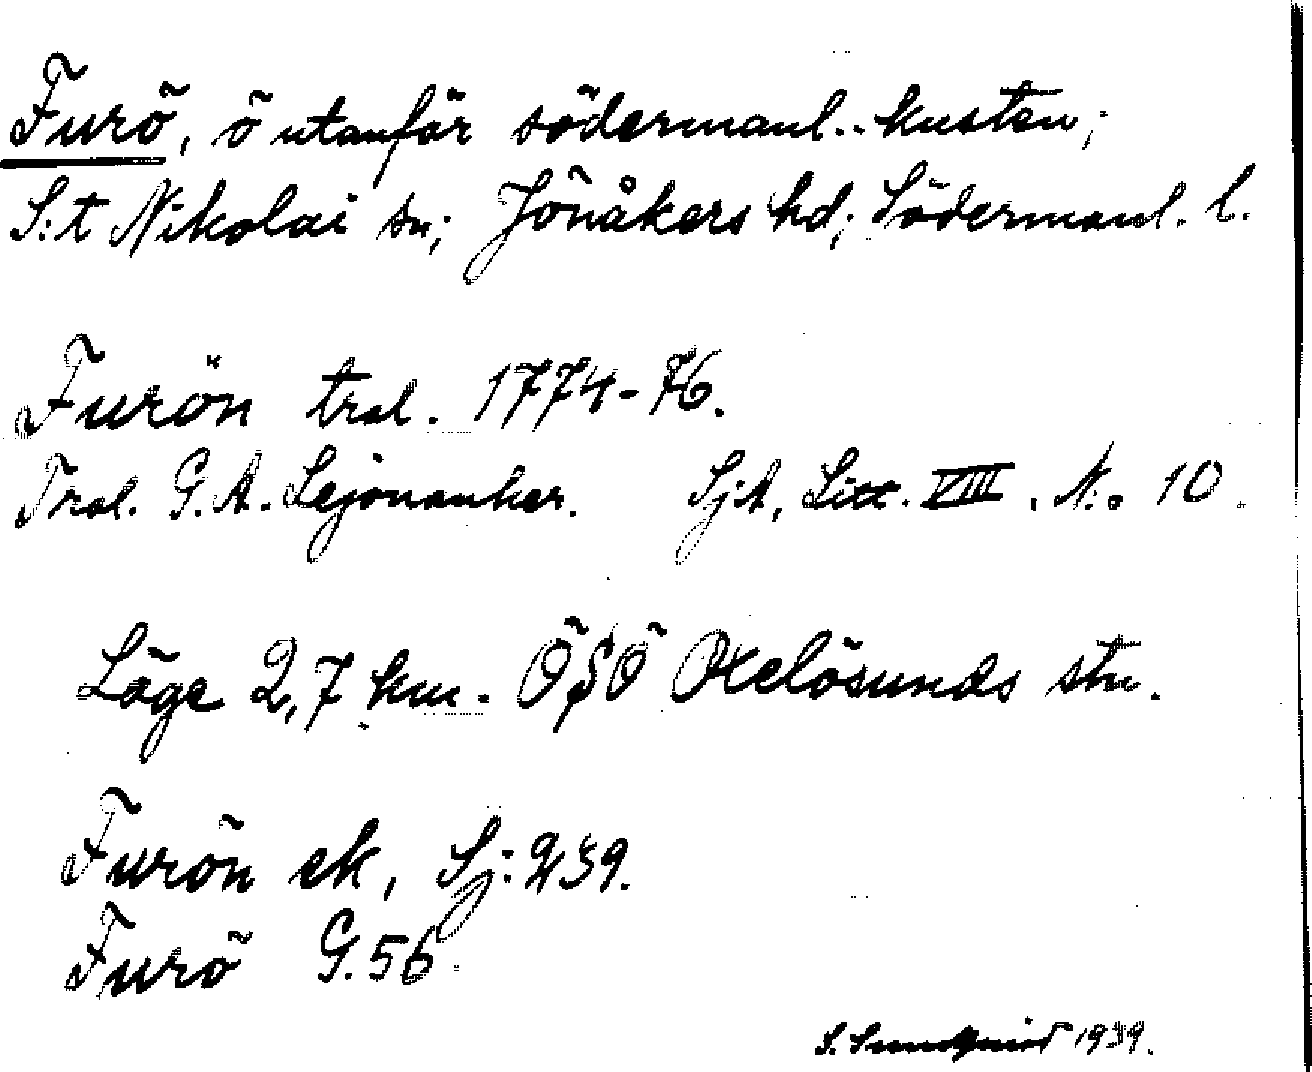 Furö, ö utanför södermanl. kusten;
S:t Nikolai sn; Jönåkers hd; Södermanl. l.
Furön tral. 1774-76.
Tral. G.A. Lejonanker. SjA, Litt. VIII. N:o 10.
Läge 2,7 km. ÖSÖ Oxelösunds stn.
Furön ek, Sj: 239.
Furö G.56.
S. Sundquist 1939.